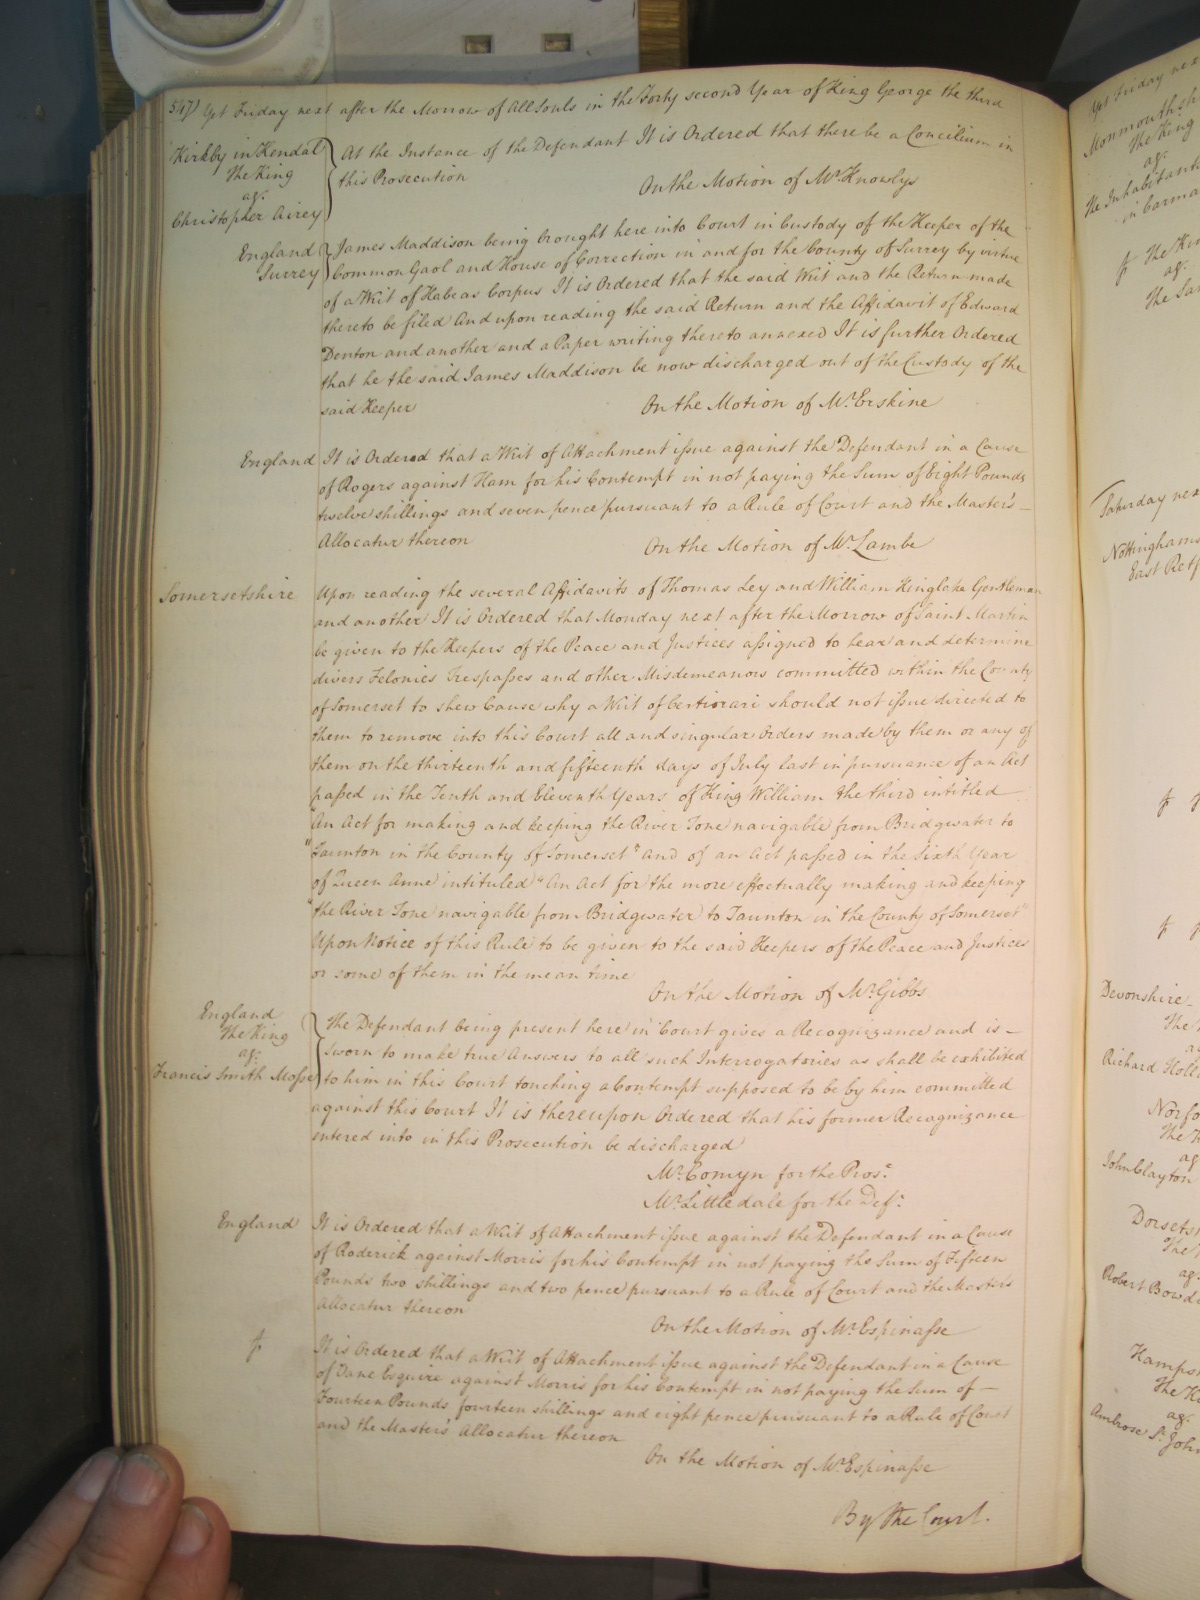 547) Yet Friday next after the Morrow of All Souls in the Forty second Year of King George the third
Kirkby in Kendal
The King
agt.
Christopher Airey
At the Instance of the Defendant It is Ordered that there be a Concilium in
this Prosecution
On the Motion of Mr. Knowlys
England
Surrey
James Maddison being brought here into Court in Custody of the Keeper of the
Common Gaol and House of Correction in and for the County of Surrey by virtue
of a Writ of Habeas Corpus It is Ordered that the said Writ and the Return made
thereto be filed And upon reading the said Return and the Affidavit of Edward
Denton and another and a Paper writing thereto annexed It is further Ordered
that he the said James Maddison be now discharged out of the Custody of the
said Keeper
On the Motion of Mr. Erskine
England
It is Ordered that a Writ of Attachment issue against the Defendant in a Cause
of Rogers against Ham for his Contempt in not paying the Sum of Eight Pounds
twelve shillings and seven pence pursuant to a Rule of Court and the Master's –
Allocatur thereon
On the Motion of Mr. Lambe
Somersetshire
Upon reading the several Affidavits of Thomas Ley and William Kinglake Gentleman
and another It is Ordered that Monday next after the Morrow of Saint Martin
be given to the Keepers of the Peace and Justices assigned to hear and determine
divers Felonies Trespasses and other Misdemeanors committed within the County
of Somerset to shew Cause why a Writ of Certiorari should not issue directed to
them to remove into this Court all and singular Orders made by them or any of
them on the thirteenth and fifteenth days of July last in pursuance of an Act
passed in the Tenth and Eleventh Years of King William the third intitled
"An Act for making and keeping the River Tone navigable from Bridgewater to
"Taunton in the County of Somerset" and of an Act passed in the Sixth Year
of Queen Anne intituled "An Act for the more effectually making and keeping
"the River Tone navigable from Bridgwater to Taunton in the County of Somerset"
Upon Notice of this Rule to be given to the said Keepers of the Peace and Justices
or some of them in the mean time
On the Motion of Mr. Gibbs
England
The King
agt.
Francis Smith Mosse
The Defendant being present here in Court gives a Recognizance and is –
sworn to make true Answers to all such Interrogatories as shall be exhibited
to him in this Court touching a Contempt supposed to be by him committed
against this Court It is thereupon Ordered that his former Recognizance
entered into in this Prosecution be discharged
Mr. Comyn for the Prosr.
Mr. Littledale for the Deft.
England
It is Ordered that a Writ of Attachment issue against the Defendant in a Cause
of Roderick against Morris for his Contempt in not paying the Sum of Fifteen
Pounds two shillings and two pence pursuant to a Rule of Court and the Master's
Allocatur thereon
On the Motion of Mr. Espinasse
It is Ordered that a Writ of Attachment issue against the Defendant in a Cause
of Vane Esquire against Morris for his Contempt in not paying the Sum of –
Fourteen Pounds fourteen shillings and eight pence pursuant to a Rule of Court
and the Master's Allocatur thereon
On the Motion of Mr. Espinasse
By the Court.
Yet Friday nex
Monmouthsh
The King
agt.
The Inhabitants
in Carma
The Kin
agt.
The Sa
Saturday nex
Nottinghams
East Retf
Devonshire
Richard Holl
Norfo
John Clayton
Dorsets
agt.
Robert Bowd
Hamps
The K
agt.
Ambrose St. John